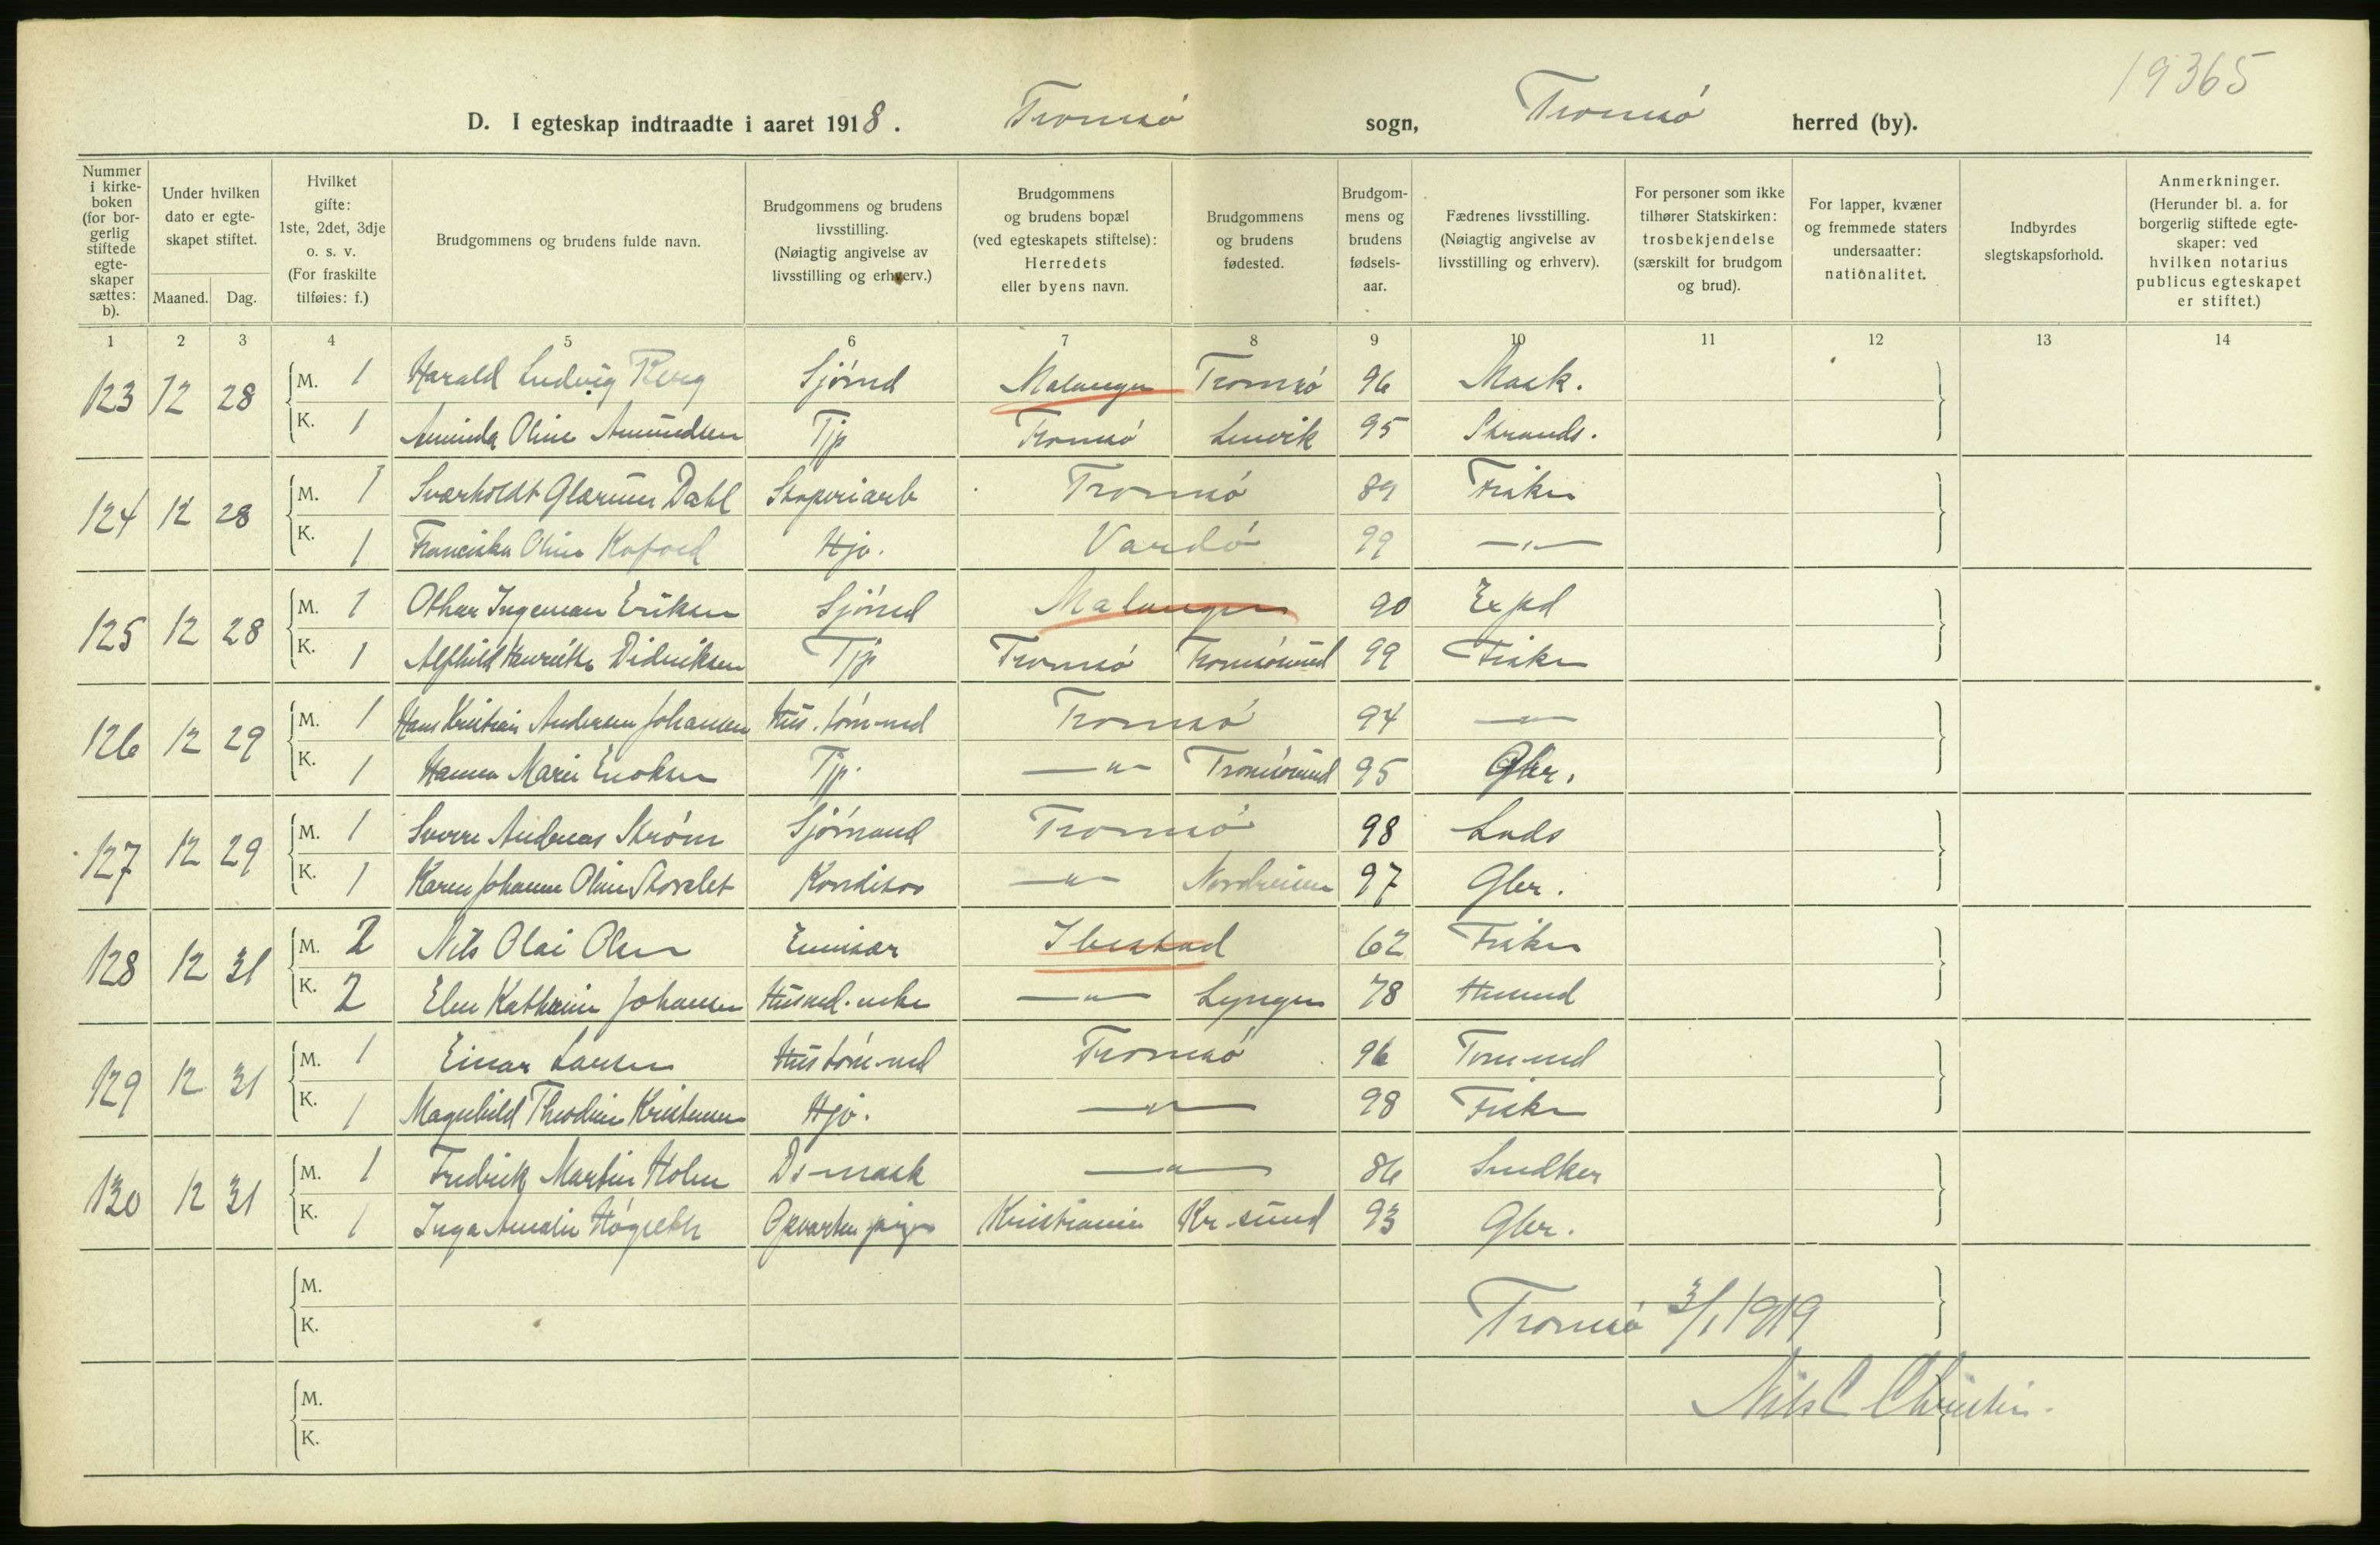 19365
D. I egteskap indtraadte i aaret 1918. Tromsø sogn, Tromsø herred (by).
Nummer i kirkeboken (for borgerlig stiftede egteskaper sættes: b).
Under hvilken dato er egteskapet stiftet.
Maaned. Dag.
Hvilket gifte: 1ste, 2det, 3dje o. s. v. (For fraskilte tilføies: f.)
Brudgommens og brudens fulde navn.
Brudgommens og brudens livsstilling. (Nøiagtig angivelse av livsstilling og erhverv.)
Brudgommens og brudens bopæl (ved egteskapets stiftelse): Herredets eller byens navn.
Brudgommens og brudens fødested.
Brudgommens og brudens fødselsaar.
Fædrenes livsstilling. (Nøiagtig angivelse av livsstilling og erhverv).
For personer som ikke tilhører Statskirken: trosbekjendelse (særskilt for brudgom og brud).
For lapper, kvæner og fremmede staters undersaatter: nationalitet.
Indbyrdes slegtskapsforhold.
Anmerkninger. (Herunder bl. a. for borgerlig stiftede egteskaper: ved hvilken notarius publicus egteskapet er stiftet.)
1 2 3 4 5 6 7 8 9 10 11 12 13 14
123 12 28 M. 1 Harald Ludvig Sjømd Malangen Tromsø 96 Mask.
K. 1 Aminda Oline Amundsen Tjp Tromsø Lenvik 95 Strands.
124 12 28 M. 1 Sværholdt Dahl Tromsø 89 Fisker
K. 1 Franciska Oline Kofoed Hjv. Vardø 99 —"—
125 12 28 M. 1 Othar Ingeman Eriksen Sjømd Malangen 90 Expd
K. 1 Alfhild Henrikke Didriksen Tjp Tromsø Tromsøsund 99 Fisker
126 12 29 M. 1 Hans Kristian Andersen Johansen Hus.tøm-md Tromsø 94 —"—
K. 1 Hanna Marie Enoksen Tjp. —"— Tromsøsund 95 Gbr.
127 12 29 M. 1 Sverre Andreas Strøm Sjømand Tromsø 98 Lods
K. 1 Karen Johanne Oline Storslet Konditor —"— Nordreisen 97 Gbr.
128 12 31 M. 2 Nils Olai Olsen Emisær Ibestad 62 Fisker
K. 2 Elen Kathrine Johansen Husmd.enke —"— Lyngen 78 Husmd
129 12 31 M. 1 Einar Larsen Hustøm-md Tromsø 96 Tøm-md
K. 1 Magnhild Theodine Kristensen Hjv. —"— 98 Fisker
130 12 31 M. 1 Fredrik Martin Holm Ds-mask —"— 86 Snedker
K. 1 Inga Amalie Høgseth Opvartn.pige Kristiania Kr.sund 93 Gbr.
M.
K.
Tromsø 3/1 1919
M.
K.
Nils C